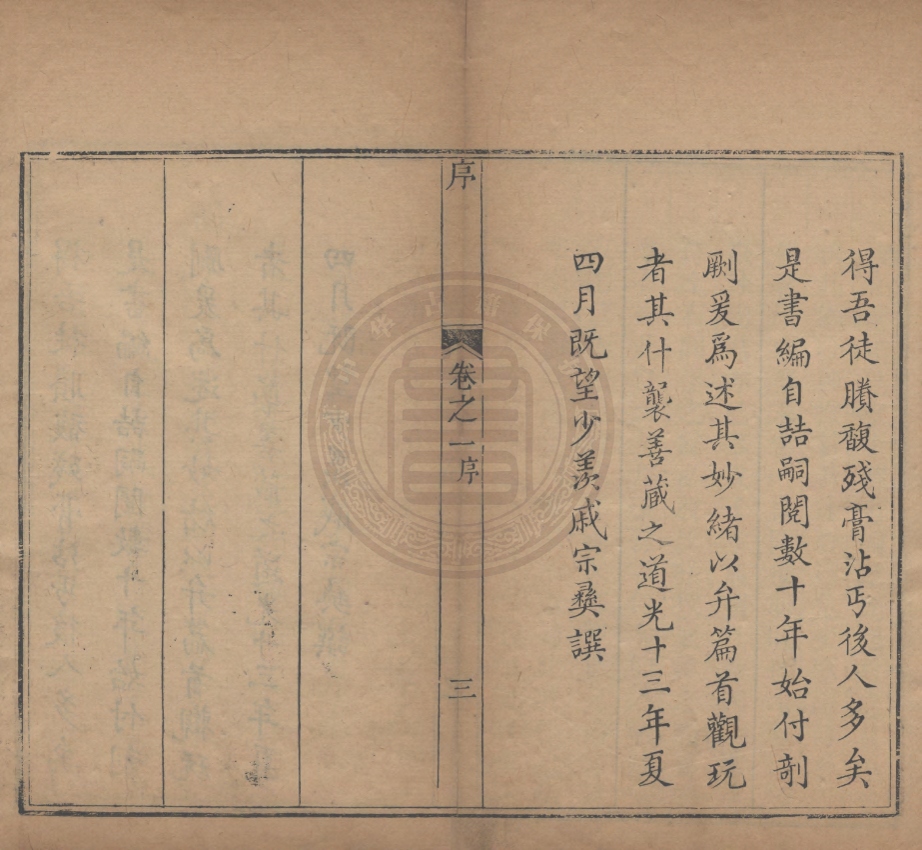 得吾徒賸馥殘膏沾丐後人多矣
是書編自喆嗣閱數十年始付剞
劂爰爲述其妙緒以弁篇首觀玩
者其什襲善藏之道光十三年夏
四月既望少羨戚宗彝譔
序
卷之一序
三